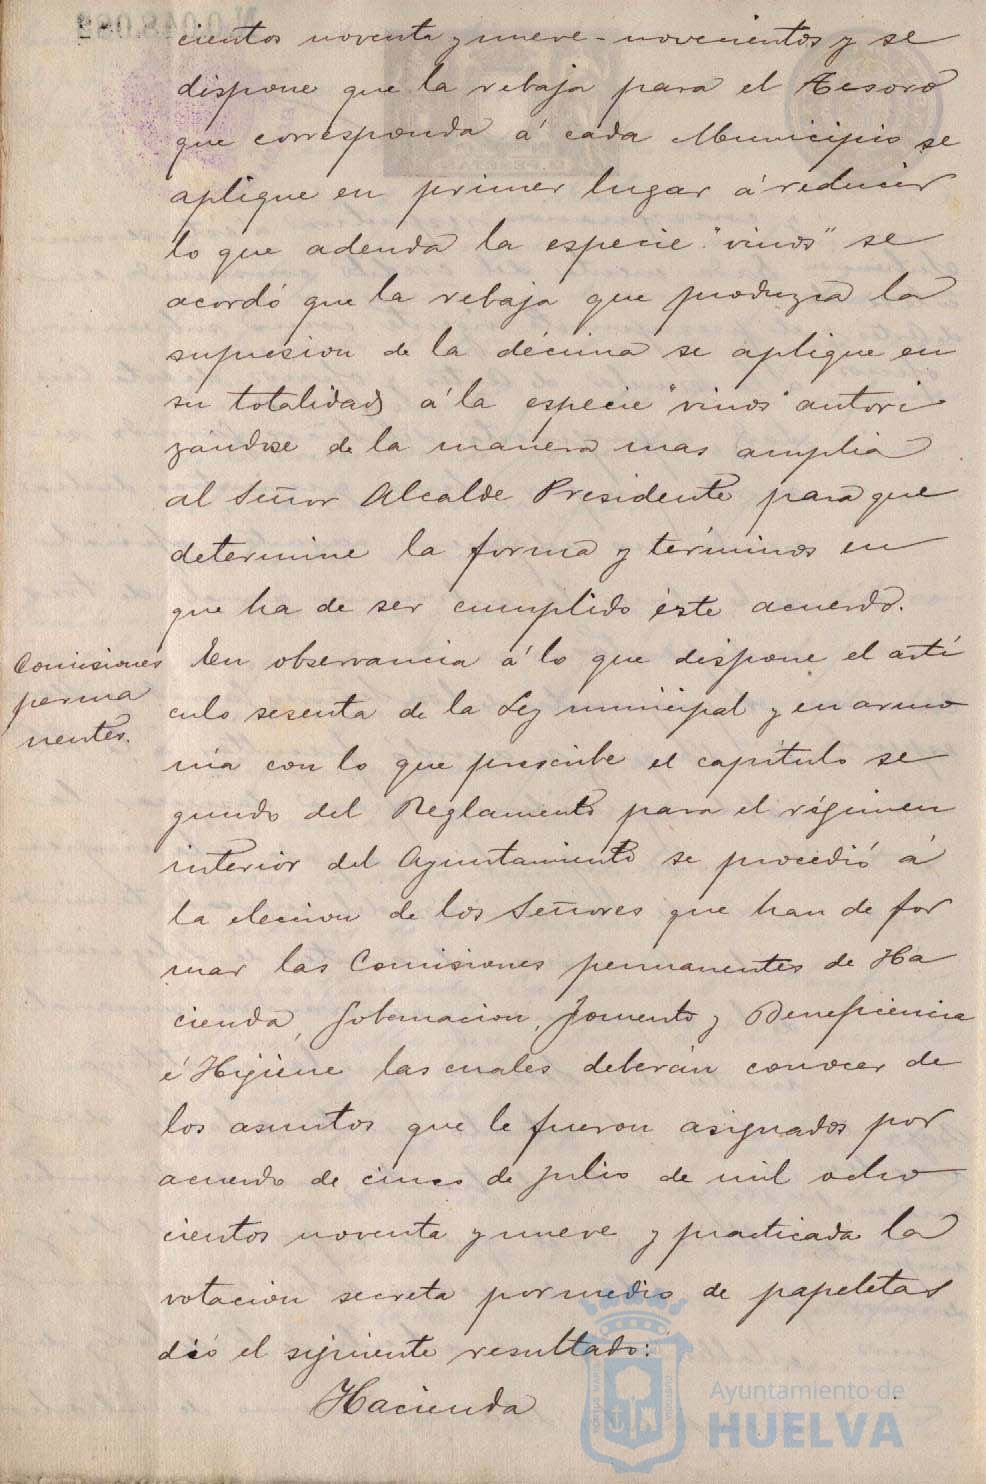 cientos noventa y nueve - novecientos y se
dispone que la rebaja para el Tesoro
que corresponda á cada Municipio se
aplique en primer lugar á reducir
lo que adeuda la especie "vinos" se
acordó que la rebaja que produzca la
supresion de la décima se aplique en
su totalidad á la especie "vinos" autori
zándose de la manera mas amplia
al Señor Alcalde Presidente para que
determine la forma y términos en
que ha de ser cumplido éste acuerdo.
Comisiones
perma
nentes.
En observancia á lo que dispone el artí
culo sesenta de la Ley municipal y en armo
nia con lo que prescribe el capítulo se
gundo del Reglamento para el régimen
interior del Ayuntamiento se procedió á
la eleccion de los Señores que han de for
mar las Comisiones permanentes de Ha
cienda, Gobernacion, Fomento y Beneficencia
é Higiene las cuales deberán conocer de
los asuntos que le fueron asignados por
acuerdo de cinco de julio de mil ocho
cientos noventa y nueve y practicada la
votacion secreta por medio de papeletas
dió el siguiente resultado:
Hacienda
Ayuntamiento de
HUELVA